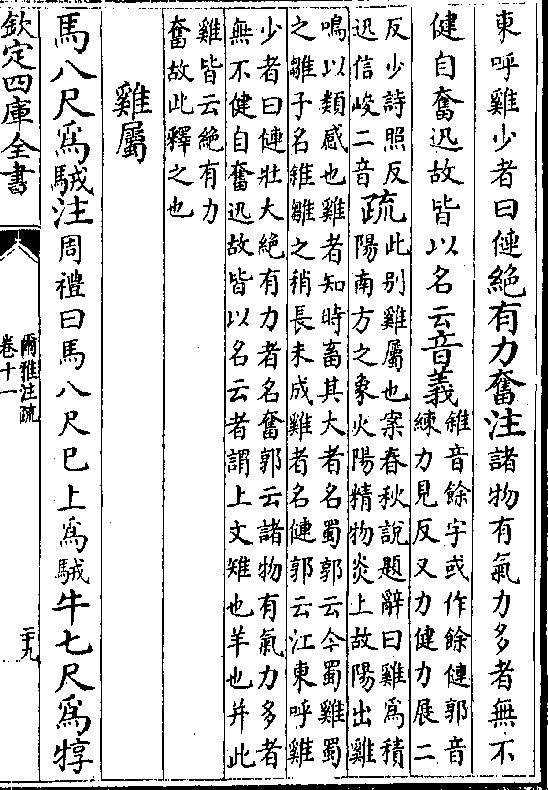 東呼雞少者曰僆絶有力奮注諸物有氣力多者無不
健自奮迅故皆以名云音義雓音餘字或作餘僆郭音
練力見反又力健力展二
反少詩照反
迅信峻二音疏此别雞屬也案春秋說題辭曰雞為積
陽南方之象火陽精物炎上故陽出雞
鳴以類感也雞者知時畜其大者名蜀郭云今蜀雞蜀
之雛子名雓雛之稍長未成雞者名僆郭云江東呼雞
少者曰僆壯大絶有力者名奮郭云諸物有氣力多者
無不健自奮迅故皆以名云者謂上文雉也羊也并此
雞皆云絶有力
奮故此釋之也
雞屬
馬八尺為駥注周禮曰馬八尺巳上為駥牛七尺為犉
欽定四庫全書
爾雅注疏
卷十一
二十九